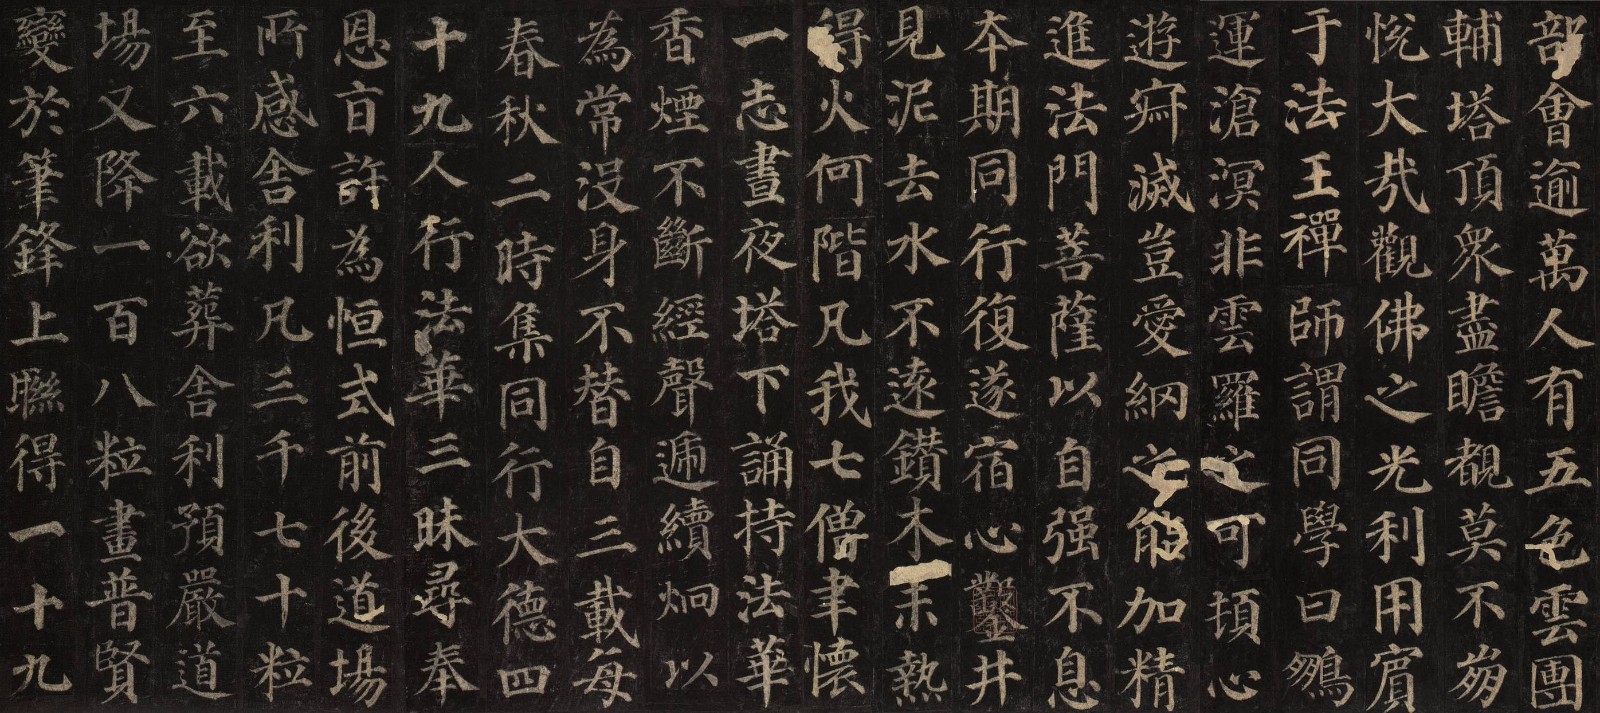 部會逾萬人有五色雲團
輔塔頂衆盡瞻覩莫不崩
悅大哉觀佛之光利用賓
于法王禪師謂同學曰鵬
運滄溟非雲羅之可頓心
遊寂滅豈愛網之能加精
進法門菩薩以自强不息
本期同行復遂宿心鑿井
見泥去水不遠鑽木未熱
得火何階凡我七僧聿懷
一志晝夜塔下誦持法華
香煙不斷經聲遞續炯以
為常沒身不替自三載每
春秋二時集同行大德四
十九人行法華三昧尋奉
恩旨許為恒式前後道場
所感舍利凡三千七十粒
至六載欲葬舍利預嚴道
場又降一百八粒畫普賢
變於筆鋒上聯得一十九